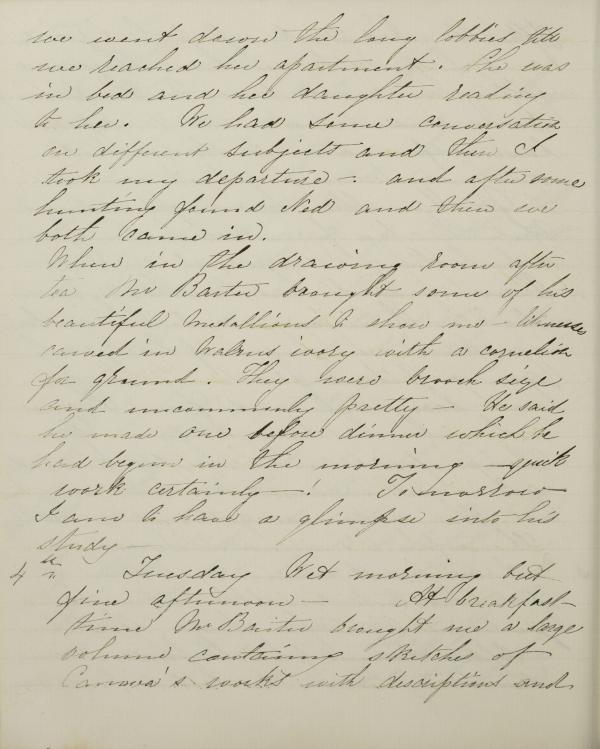 we went down the long lobbies till
we reached her apartment. She was
in bed and her daughter reading
to her. We had some conversation
on different subjects and then I
took my departure - and after some
hunting found Ned and then we
both came in.
When in the drawing room after
tea Mr Baxter brought some of his
beautiful medallions to show me -
carved in walrus ivory with a cornelian
for ground. They were brooch size
and uncommonly pretty - He said
he made one before dinner which he
had begun in the morning - quick
work certainly - ! Tomorrow
I am to have a glimpse into his
study -
4th Tuesday Wet morning but
fine afternoon - At breakfast
time Mr Baxter brought me a large
volume containing sketches of
Canova's works with descriptions and